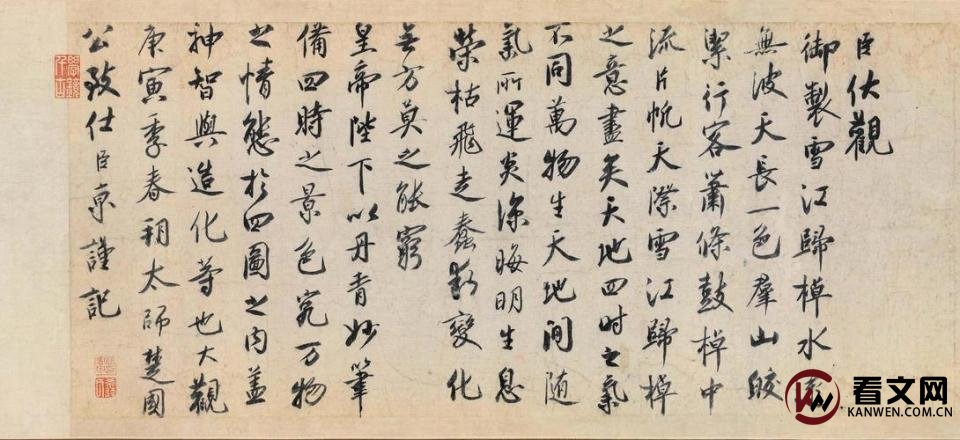 臣伏觀
御製雪江歸棹水遠
無波天長一色羣山皎
潔行客蕭條鼓棹中
流片帆天際雪江歸棹
之意盡矣天地四时之氣
不同萬物生天地間隨
氣所運炎涼晦明生息
榮枯飛走蠢動變化
無方莫之能窮
皇帝陛下以丹青妙筆
備四時之景色究万物
之情態於四圖之内蓋
神智與造化等也大觀
庚寅季春朔太師楚國
公致仕臣京謹記
看文网
KANWEN.COM.CN